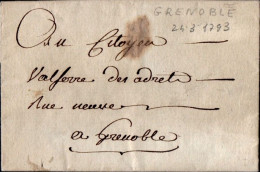 GRENOBLE
24.3 1793
Au Citoyen
Valserre des adrets
Rue neuve
a Grenoble